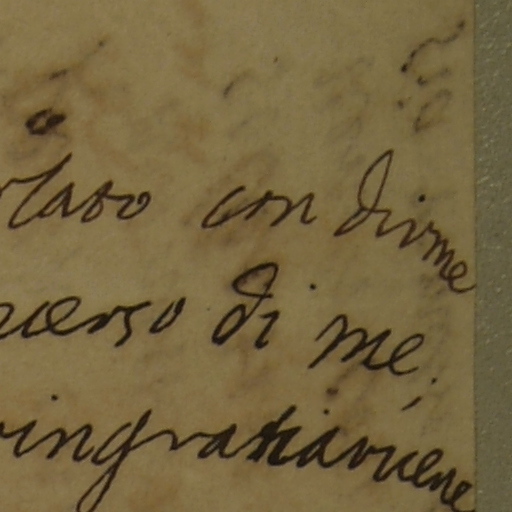 rlato con dirme
verso di me;
ringratiarvene